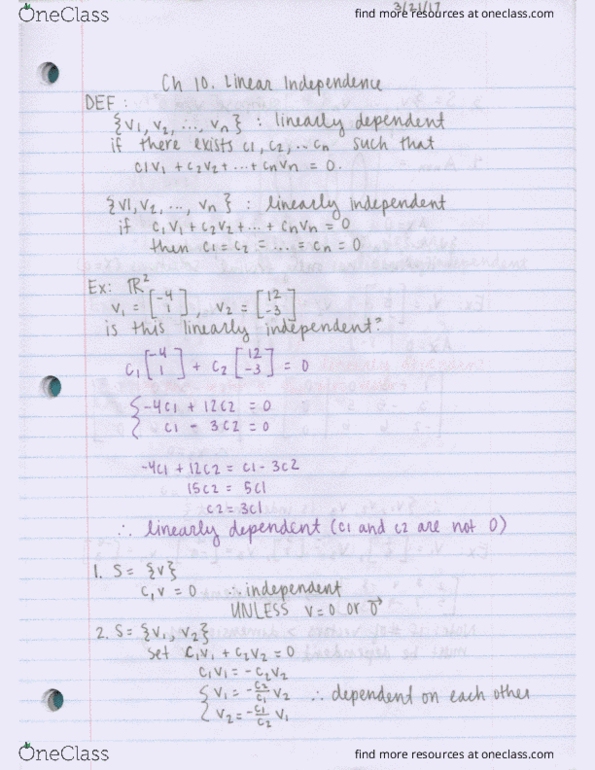 OneClass
find more resources at oneclass.com
3/21/17
Ch 10. Linear Independence
DEF :
{v1, v2, ..., vn} : linearly dependent
if there exists c1, c2, ... cn such that
c1v1 + c2v2 + ... + cnvn = 0.
{v1, v2, ..., vn} : linearly independent
if c1v1 + c2v2 + ... + cnvn = 0
then c1 = c2 = ... = cn = 0
Ex: ℝ²
v1 = [-4 1], v2 = [12 -3]
is this linearly independent?
c1 [-4 1] + c2 [12 -3] = 0
{-4c1 + 12c2 = 0
c1 - 3c2 = 0
-4c1 + 12c2 = c1 - 3c2
15c2 = 5c1
c2 = 3c1
∴ linearly dependent (c1 and c2 are not 0)
1. S = {v}
c1v = 0 ∴ independent
UNLESS v = 0 or 0⃗
2. S = {v1, v2}
set c1v1 + c2v2 = 0
c1v1 = -c2v2
{v1 = -c2/c1 v2 ∴ dependent on each other
v2 = -c1/c2 v1
OneClass
find more resources at oneclass.com